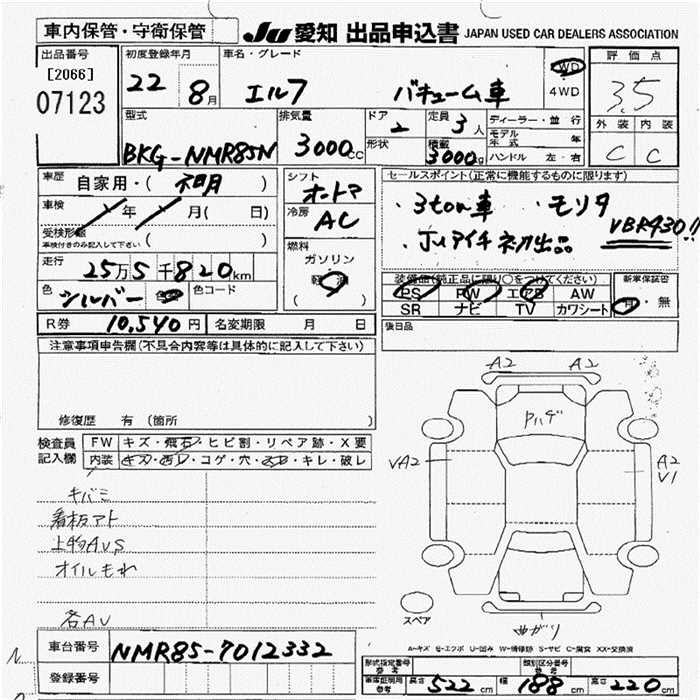 車内保管・守衛保管
JU 愛知 出品申込書 JAPAN USED CAR DEALERS ASSOCIATION
出品番号
[2066]
07123
初度登録年月
22 8月
車名・グレード
エルフ バキューム車
WD
4WD
評価点
3.5
外装 内装
C C
型式
BKG-NMR85N
排気量
3000cc
ドア
2
形状
定員
3人
積載
3000kg
ディーラー・並行
モデル年式
ハンドル 左・右
車歴
自家用・( 不明 )
車検
年 月( 日)
受検形態
車検付きのみ記入して下さい ( )
走行
25万5千820km
色
シルバー
色コード
シフト
オートマ
冷房
AC
燃料
ガソリン
軽油
( )
セールスポイント(正常に機能するものに限ります)
・3ton車 ・モリタ
・JUアイチ初出品 VBR430!!
装備品(純正品に限り○をつけてください)
PS PW エアB AW
SR ナビ TV カワシート
新車保証書
有・無
後日品
R券 10,540円 名変期限 月 日
注意事項申告欄(不具合内容等は具体的に記入して下さい)
修復歴 有 (箇所 )
検査員記入欄
FW キズ・飛石・ヒビ割・リペア跡・X要
内装 キズ・汚レ・コゲ・穴・スレ・キレ・破レ
キバミ
看板アト
上物AVS
オイルもれ
各AV
A2 A2
Pハゲ
VA2
A2
V1
スペア
曲がり
A-キズ E-エクボ U-凹み W-補修跡 S-サビ C-腐食 XX-交換済
車台番号 NMR85-7012332
登録番号
形式指定番号参考
類別区分番号参考
車庫証明用参考 長さ 522cm 幅 188cm 高さ 220cm